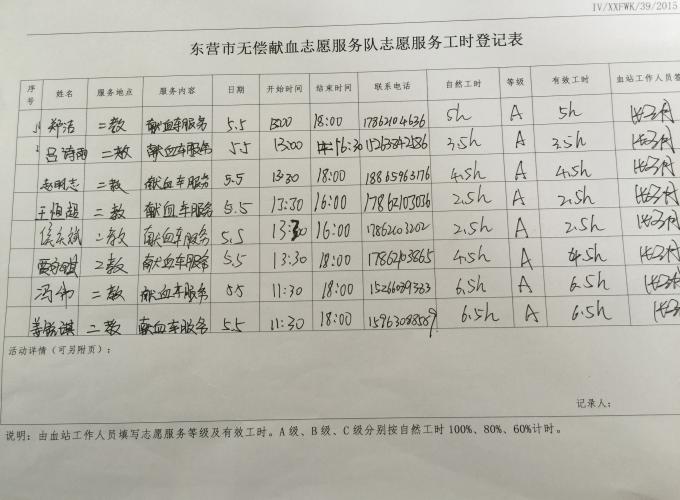 IV/XXFWK/39/2015
东营市无偿献血志愿服务队志愿服务工时登记表
序号 姓名 服务地点 服务内容 日期 开始时间 结束时间 联系电话 自然工时 等级 有效工时 血站工作人员签
郑洁 二教 献血车服务 5.5 13:00 18:00 17862104636 5h A 5h
吕诗雨 二教 献血车服务 5.5 13:00 16:30 15263842586 3.5h A 3.5h
赵明志 二教 献血车服务 5.5 13:30 18:00 18865963176 4.5h A 4.5h
王恒超 二教 献血车服务 5.5 13:30 16:00 17862103036 2.5h A 2.5h
二教 献血车服务 5.5 13:30 16:00 2.5h A 2.5h
二教 献血车服务 5.5 13:30 18:00 17862103865 4.5h A 4.5h
冯伟 二教 献血车服务 5.5 11:30 18:00 15266039363 6.5h A 6.5h
二教 献血车服务 5.5 11:30 18:00 15963088589 6.5h A 6.5h
活动详情（可另附页）：
记录人：
说明：由血站工作人员填写志愿服务等级及有效工时。A级、B级、C级分别按自然工时100%、80%、60%计时。